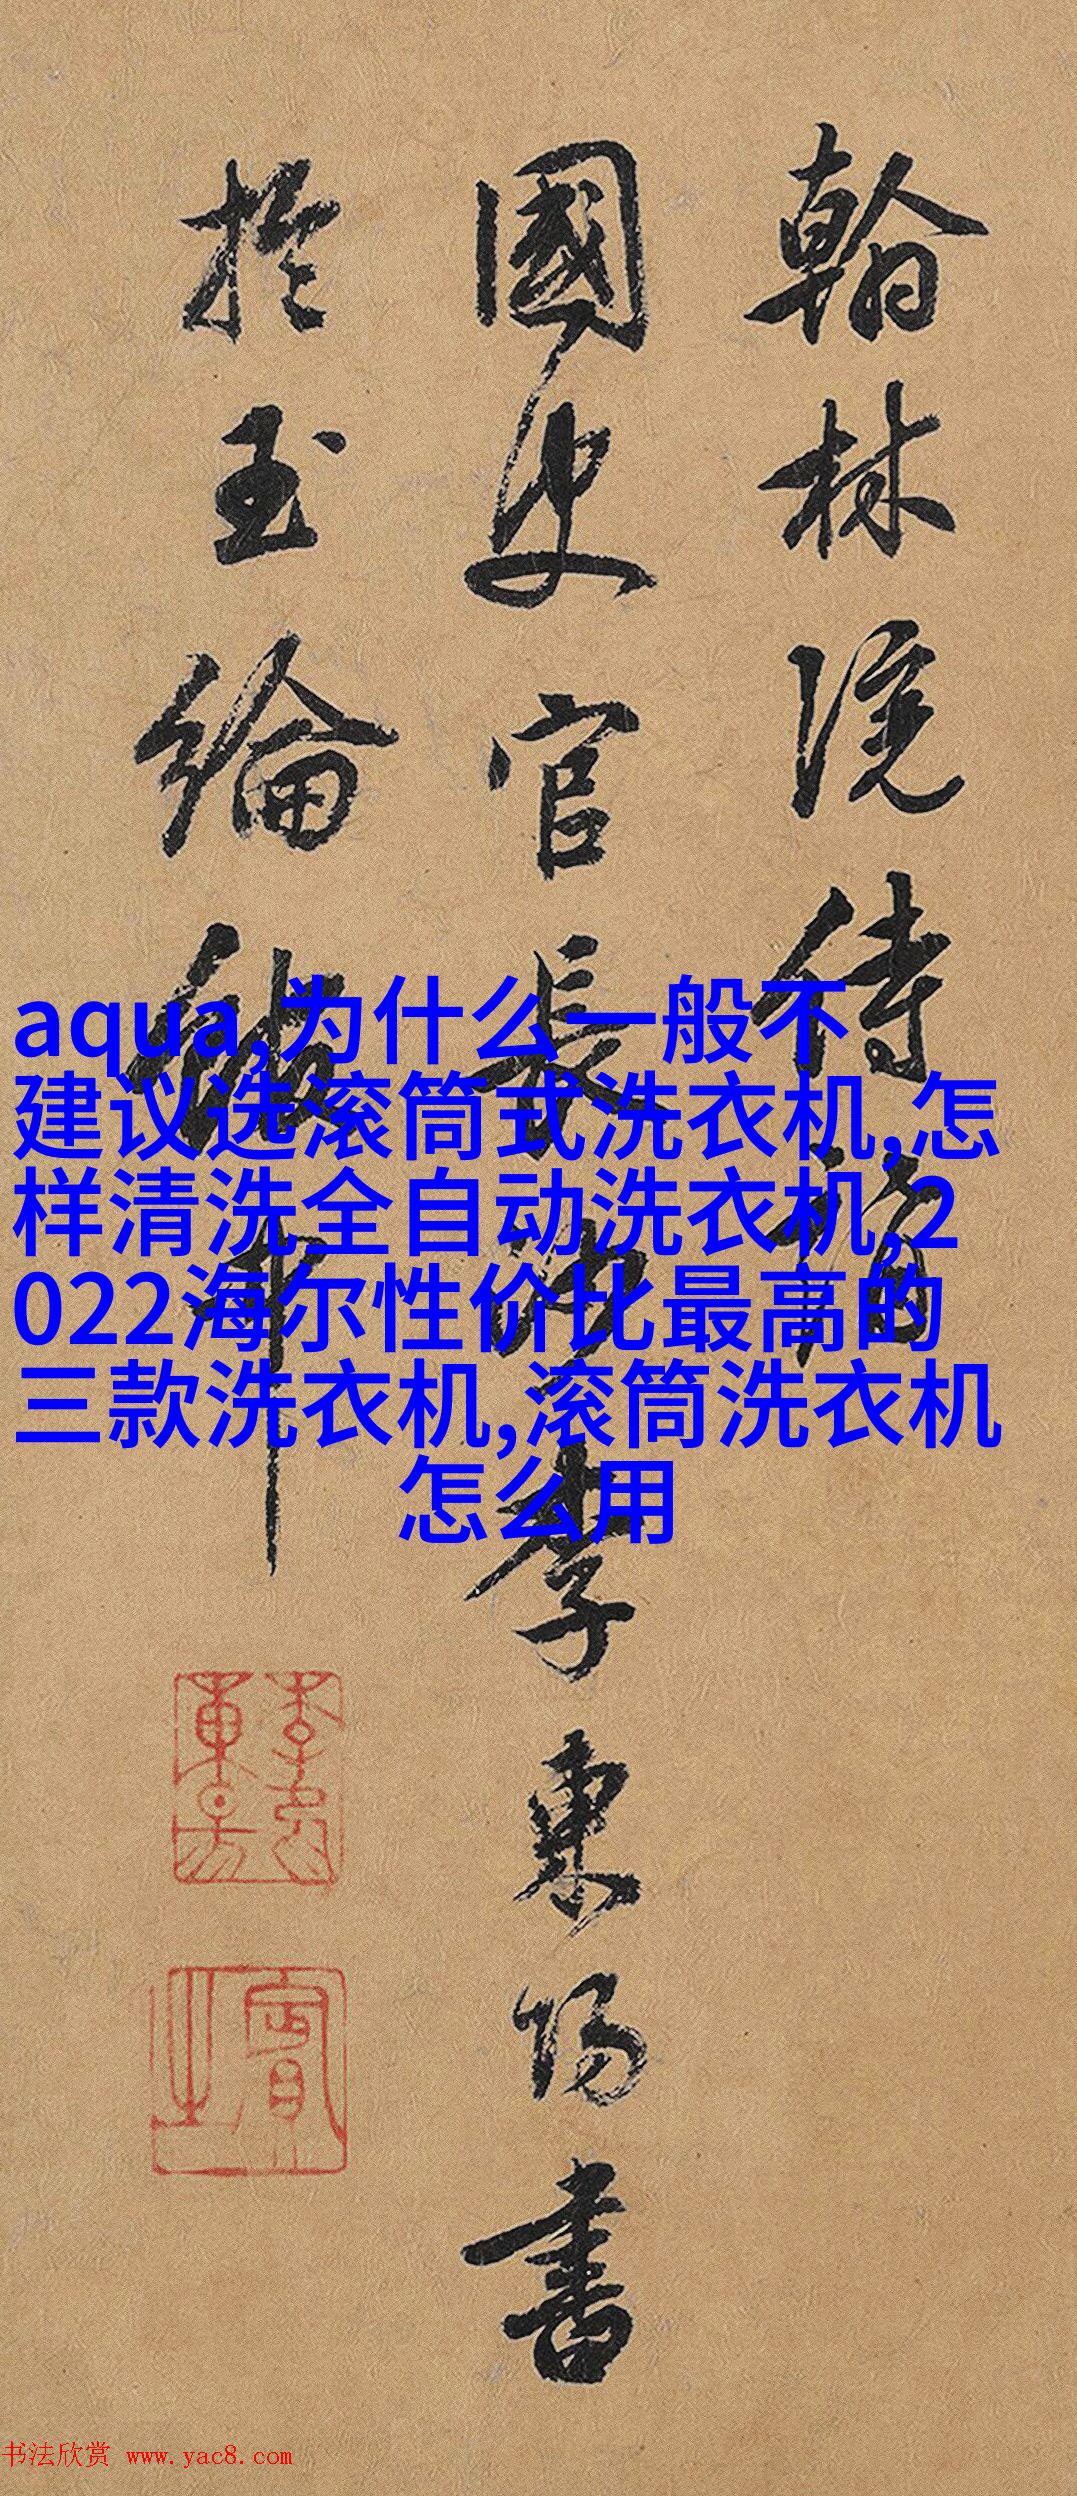 翰林院侍講
國史官長沙李東陽書
於玉綸中
aqua,为什么一般不
建议选滚筒式洗衣机,怎
样清洗全自动洗衣机,2
022海尔性价比最高的
三款洗衣机,滚筒洗衣机
怎么用
賓之
书法欣赏 www.yac8.com